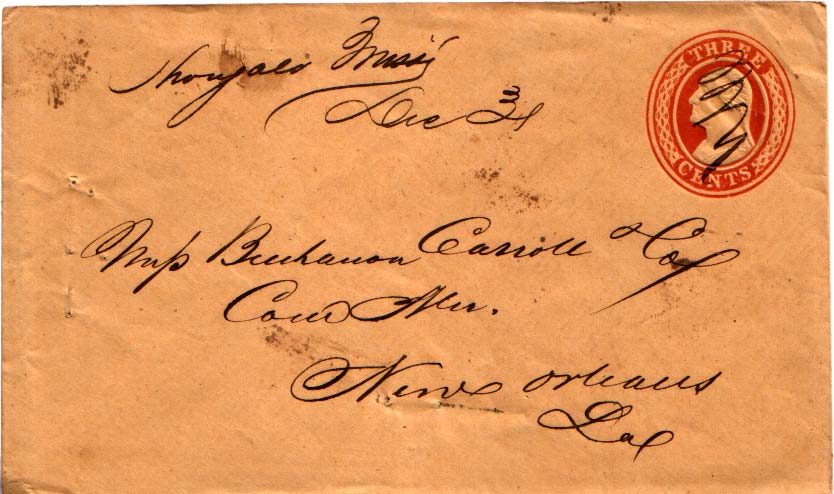 Shongalo Missi
Dec 31
THREE
CENTS
Mess Buchanon Carroll & Co
Com Mer.
New Orleans
La